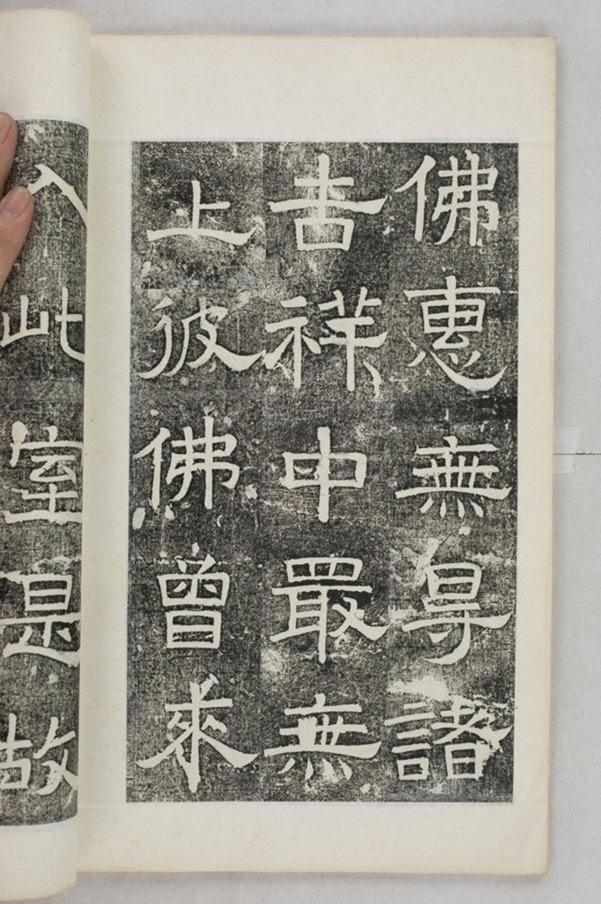 佛惠無㝵諸
吉祥中最無
上彼佛曾來
入此室是故